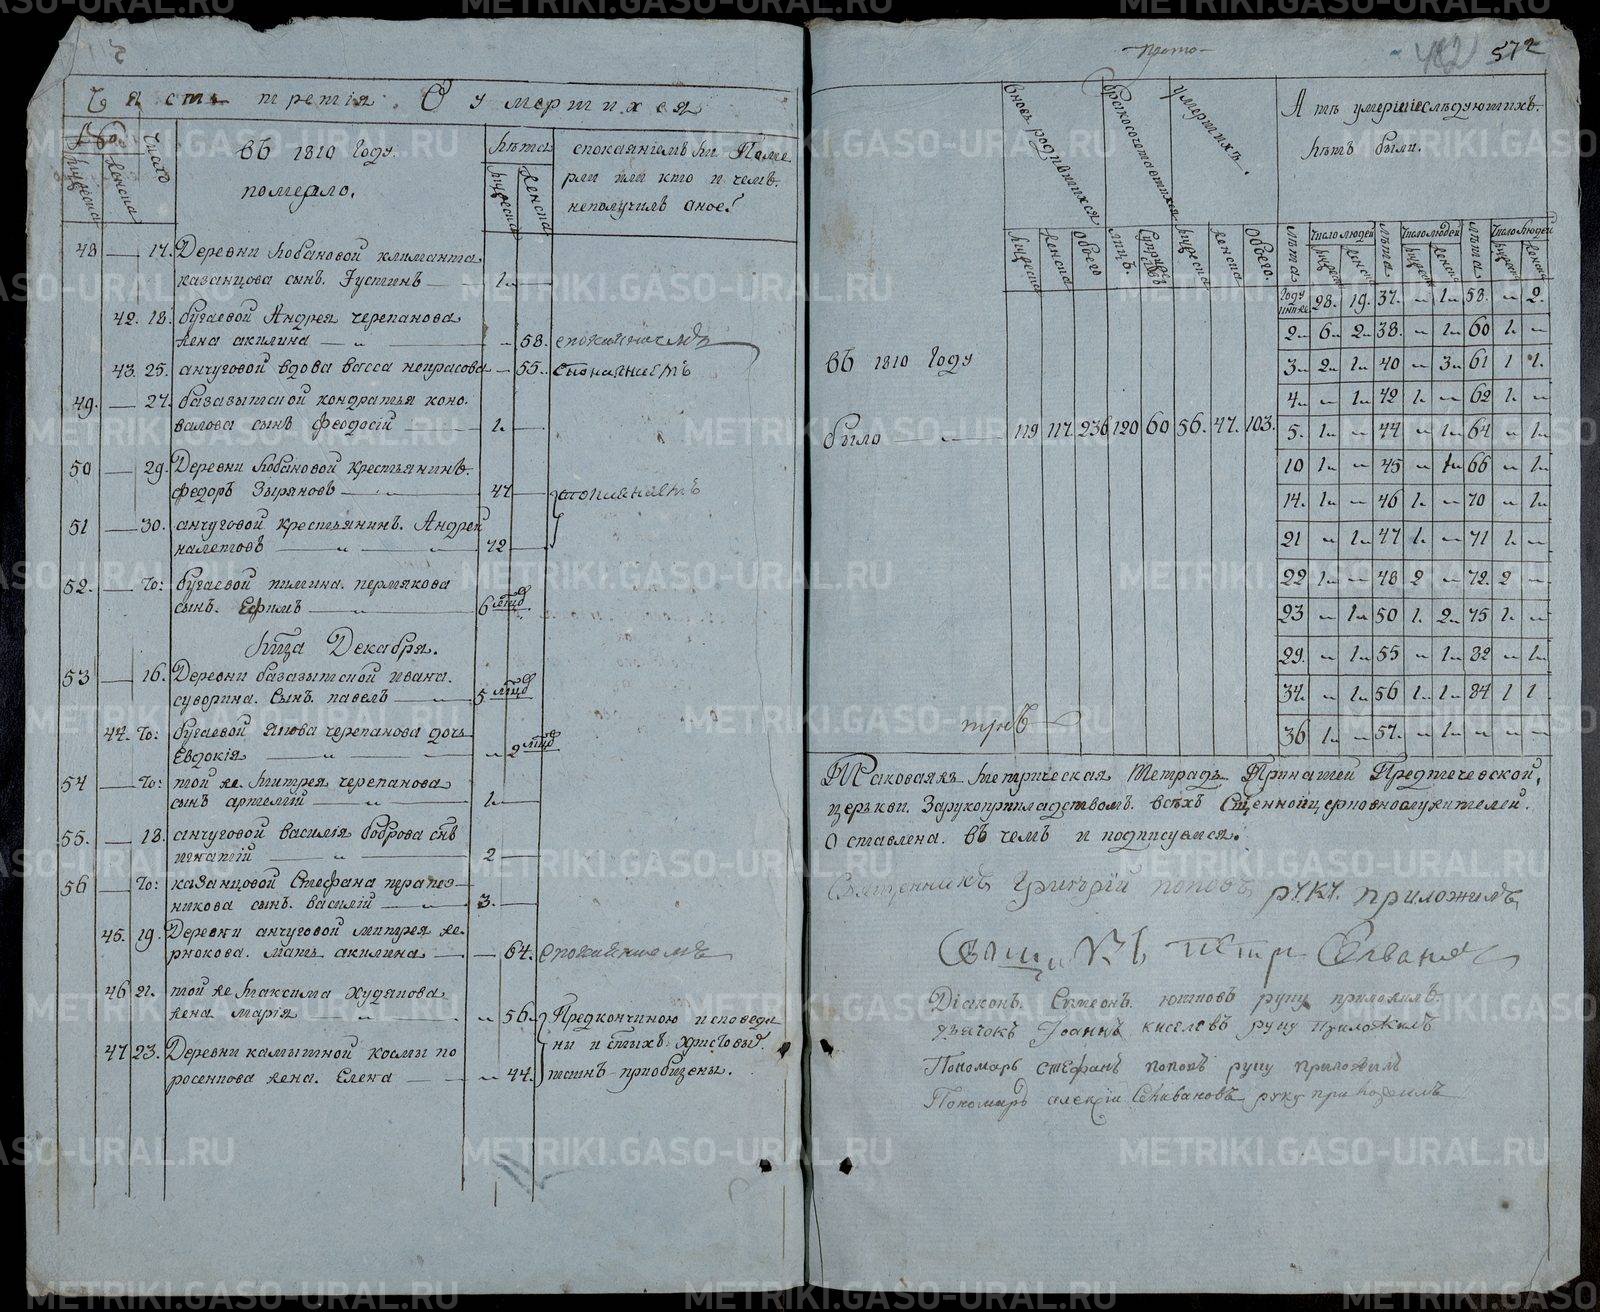 Часть третiя. О умершихся
№
мужеска
женска
число
въ 1810 году
померло.
лѣта
мужеска
женска
спокаянiемъ ли Поме
рли или кто и чемъ
неполучилъ оное?
48 — 17. Деревни Лобановой климанта
казанцова сынъ Густинъ — 1
42. 18. бугаевой Андрея черепанова
жена акилина — 58. спокаянiемъ
43. 25. анчуговой вдова васса некрасова — 55. спокаянiемъ
49. — 27. базазытской кондратья коно
валова сынъ феодосiй — 1
50 — 29. Деревни Лобановой крестьянинъ
федоръ Зыряновъ — 47
спокаянiемъ
51 — 30. анчуговой крестьянинъ. Андрей
налетовъ — 72
52. — То: бугаевой пимина. пермякова
сынъ. Ефимъ — 6 мцъ
Мца Декабря.
53 — 16. Деревни базазытской ивана.
суворина. Сынъ. павелъ — 5 мцъ
44. То: бугаевой якова черепанова дочь
Евдокiя — 2 мцъ
54 — То: той же. дмитрея черепанова
сынъ артемiй — 1
55. — 18. анчуговой василiя боброва снъ
игнатiй — 2
56 — То: казанцовой Стефана
никова сынъ. василiй — 3.
45. 19. Деревни анчуговой митрея же.
рнокова. мать акилина — 64. спокаянiемъ
46 21. той же максима Худякова
жена марiя — 56.
Предкончиною исповеда
ни и стыхъ христовы
таинъ прiобщены.
47 23. Деревни камышной космы по
росенкова жена. Елена — 44.
572
вновь родившихся
бракосочетавшихся
умершихъ.
А въ умершихъ
лѣтъ были.
мужеска
женска
обоего
лицъ.
мужеска
женска
обоего.
лѣта число людей лѣта число людей лѣта число людей
въ 1810 году
было — 119 117 236 120 60 56. 47. 103.
году 28. 19. 37. „ 1 58. „ 2.
2 6 2 38. „ 1 60 1. „
3 2 1 40 „ 3 61 1 1.
4 „ 1 42 1. „ 62 1. „
5. 1 „ 44 „ 1 64 „ 1
10 1 „ 45 „ 1 66 „ 1
14. 1 „ 46 1. „ 70 „ 1
21 „ 1 47 1. „ 71 1. „
22 1 „ 48 2 „ 72. 2 „
23 „ 1 50 1. 2 75 1. „
29. „ 1 55 „ 1 82 „ 1
34. „ 1 56 1. 1. 84 1 1
36 1 „ 57. „ 1 „ „ „
Таковаяжъ метрическая тетрадь Принашей Предтечевской,
церькви. Зарукоприкладствомъ. всѣхъ Сщенноицерковнослужителей.
Оставлена. въ чемъ и подписуемся.
Священникъ Григорiй поповъ руку приложилъ
Петръ Селвановъ
Дiаконъ. Симеонъ. юшковъ руку приложилъ.
дьячокъ Iоаннъ киселевъ руку приложилъ
Пономарь стефанъ поповъ руку приложилъ
Пономарь алексiй Селивановъ руку приложилъ
METRIKI.GASO-URAL.RU